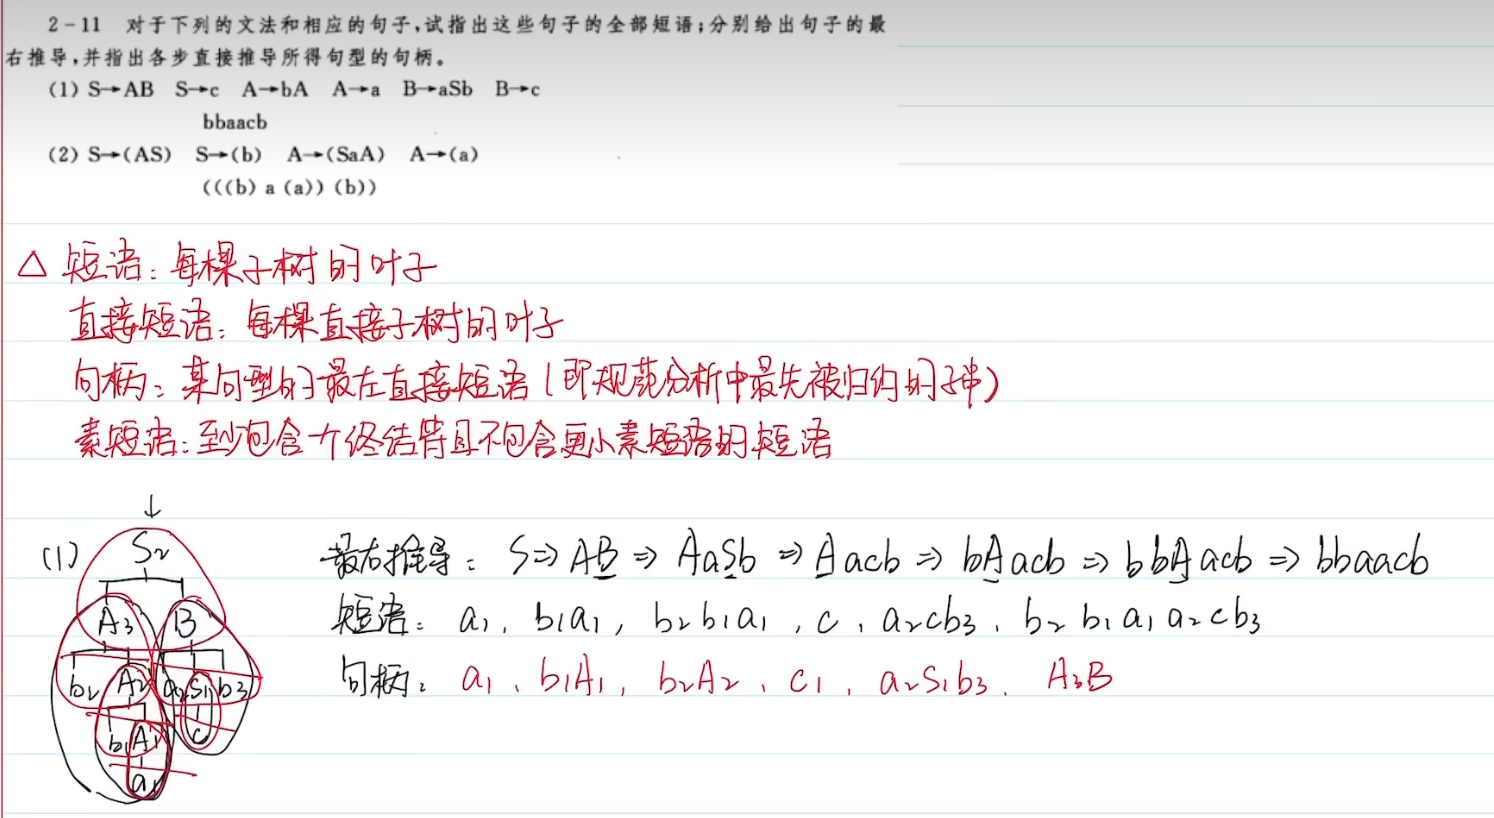 2-11 对于下列的文法和相应的句子,试指出这些句子的全部短语;分别给出句子的最
右推导,并指出各步直接推导所得句型的句柄。
(1) S→AB S→c A→bA A→a B→aSb B→c
bbaacb
(2) S→(AS) S→(b) A→(SaA) A→(a)
(((b) a (a)) (b))
△ 短语:每棵子树的叶子
直接短语:每棵直接子树的叶子
句柄:某句型的最左直接短语(即规范分析中最先被归约的子串)
素短语:至少包含个终结符且不包含更小素短语的短语
(1)
↓
S₂
A₃ B
b₂ A₂ a₂ S₁ b₃
b₁ A₁ c
a₁
最右推导: S⇒AB⇒AaSb⇒Aacb⇒bAacb⇒bbAacb⇒bbaacb
短语: a₁, b₁a₁, b₂b₁a₁, c, a₂cb₃, b₂b₁a₁a₂cb₃
句柄: a₁, b₁A₁, b₂A₂, c₁, a₂S₁b₃, A₃B